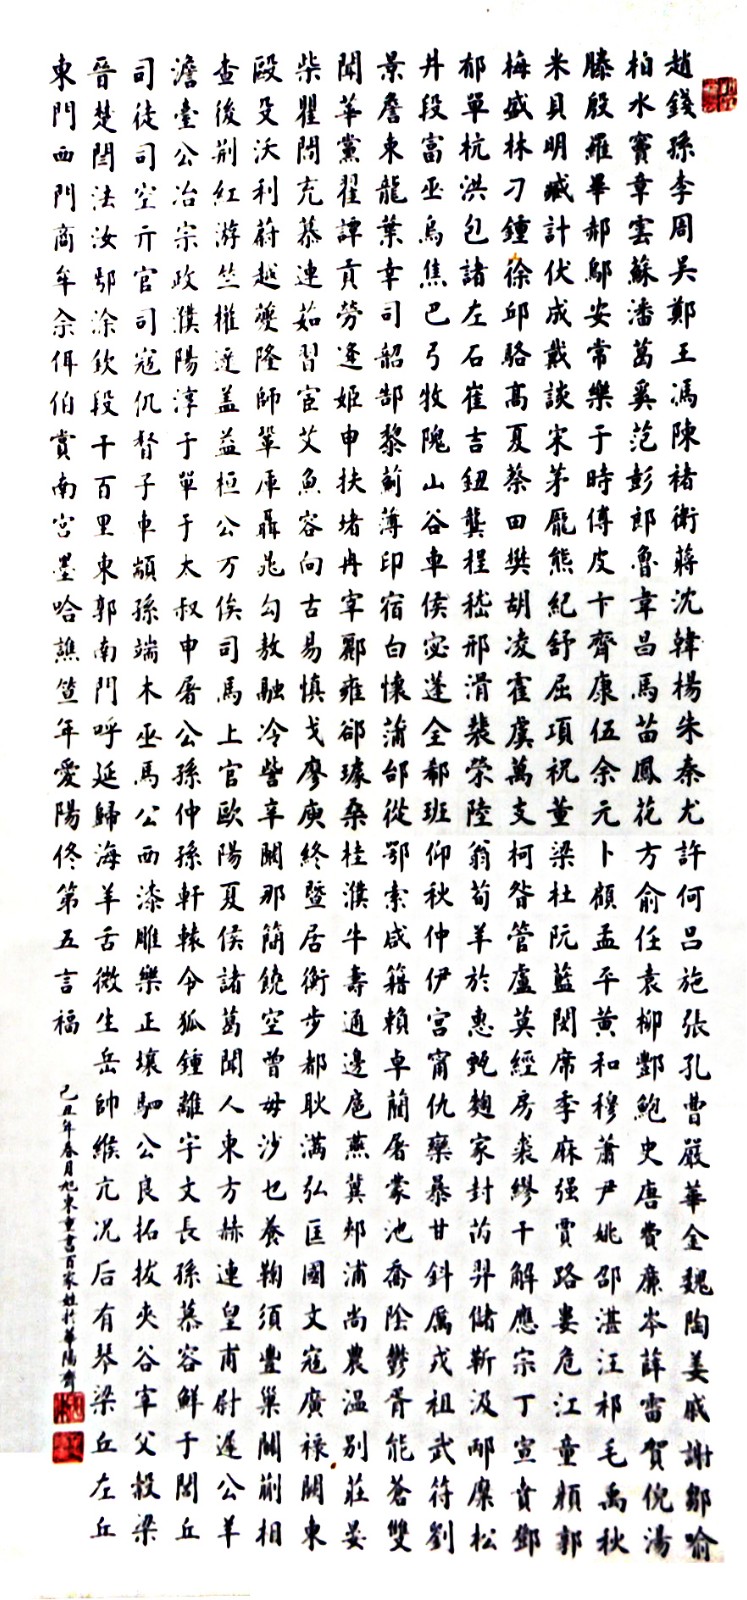 趙錢孫李周吳鄭王馮陳褚衛蔣沈韓楊朱秦尤許何呂施張孔曹嚴華金魏陶姜戚謝鄒喻
柏水竇章雲蘇潘葛奚范彭郎魯韋昌馬苗鳳花方俞任袁柳酆鮑史唐費廉岑薛雷賀倪湯
滕殷羅畢郝鄔安常樂于時傅皮卞齊康伍余元卜顧孟平黃和穆蕭尹姚邵湛汪祁毛禹秋
米貝明臧計伏成戴談宋茅龐熊紀舒屈項祝董梁杜阮藍閔席季麻强賈路婁危江童顏郭
梅盛林刁鍾徐邱駱高夏蔡田樊胡凌霍虞萬支柯昝管盧莫經房裘繆干解應宗丁宣賁鄧
郁單杭洪包諸左石崔吉鈕龔程嵇邢滑裴榮陸翁荀羊於惠甄麴家封芮羿儲靳汲邴糜松
井段富巫烏焦巴弓牧隗山谷車侯宓蓬全郗班仰秋仲伊宮甯仇欒暴甘鈄厲戎祖武符劉
景詹束龍葉幸司韶郜黎薊薄印宿白懷蒲邰從鄂索咸籍賴卓藺屠蒙池喬陰鬱胥能蒼雙
聞莘黨翟譚貢勞逄姬申扶堵冉宰酈雍郤璩桑桂濮牛壽通邊扈燕冀郟浦尚農溫別莊晏
柴瞿閻充慕連茹習宦艾魚容向古易慎戈廖庾終暨居衡步都耿滿弘匡國文寇廣祿闕東
毆殳沃利蔚越夔隆師鞏厙聶晁勾敖融冷訾辛闞那簡饒空曾毋沙乜養鞠須豐巢關蒯相
查後荊紅游竺權逯蓋益桓公万俟司馬上官歐陽夏侯諸葛聞人東方赫連皇甫尉遲公羊
澹臺公冶宗政濮陽淳于單于太叔申屠公孫仲孫軒轅令狐鍾離宇文長孫慕容鮮于閭丘
司徒司空亓官司寇仉督子車顓孫端木巫馬公西漆雕樂正壤駟公良拓拔夾谷宰父穀梁
晉楚閆法汝鄢涂欽段干百里東郭南門呼延歸海羊舌微生岳帥緱亢況后有琴梁丘左丘
東門西門商牟佘佴伯賞南宮墨哈譙笪年愛陽佟第五言福
己丑年春月旭東重書百家姓於華陽齋